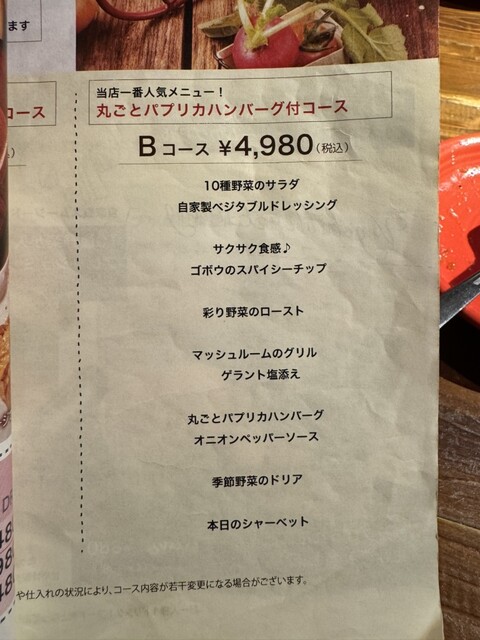 ます
コース
当店一番人気メニュー！
丸ごとパプリカハンバーグ付コース
Bコース ¥4,980(税込)
10種野菜のサラダ
自家製ベジタブルドレッシング
サクサク食感♪
ゴボウのスパイシーチップ
彩り野菜のロースト
マッシュルームのグリル
ゲラント塩添え
丸ごとパプリカハンバーグ
オニオンペッパーソース
季節野菜のドリア
本日のシャーベット
や仕入れの状況により、コース内容が若干変更になる場合がございます。